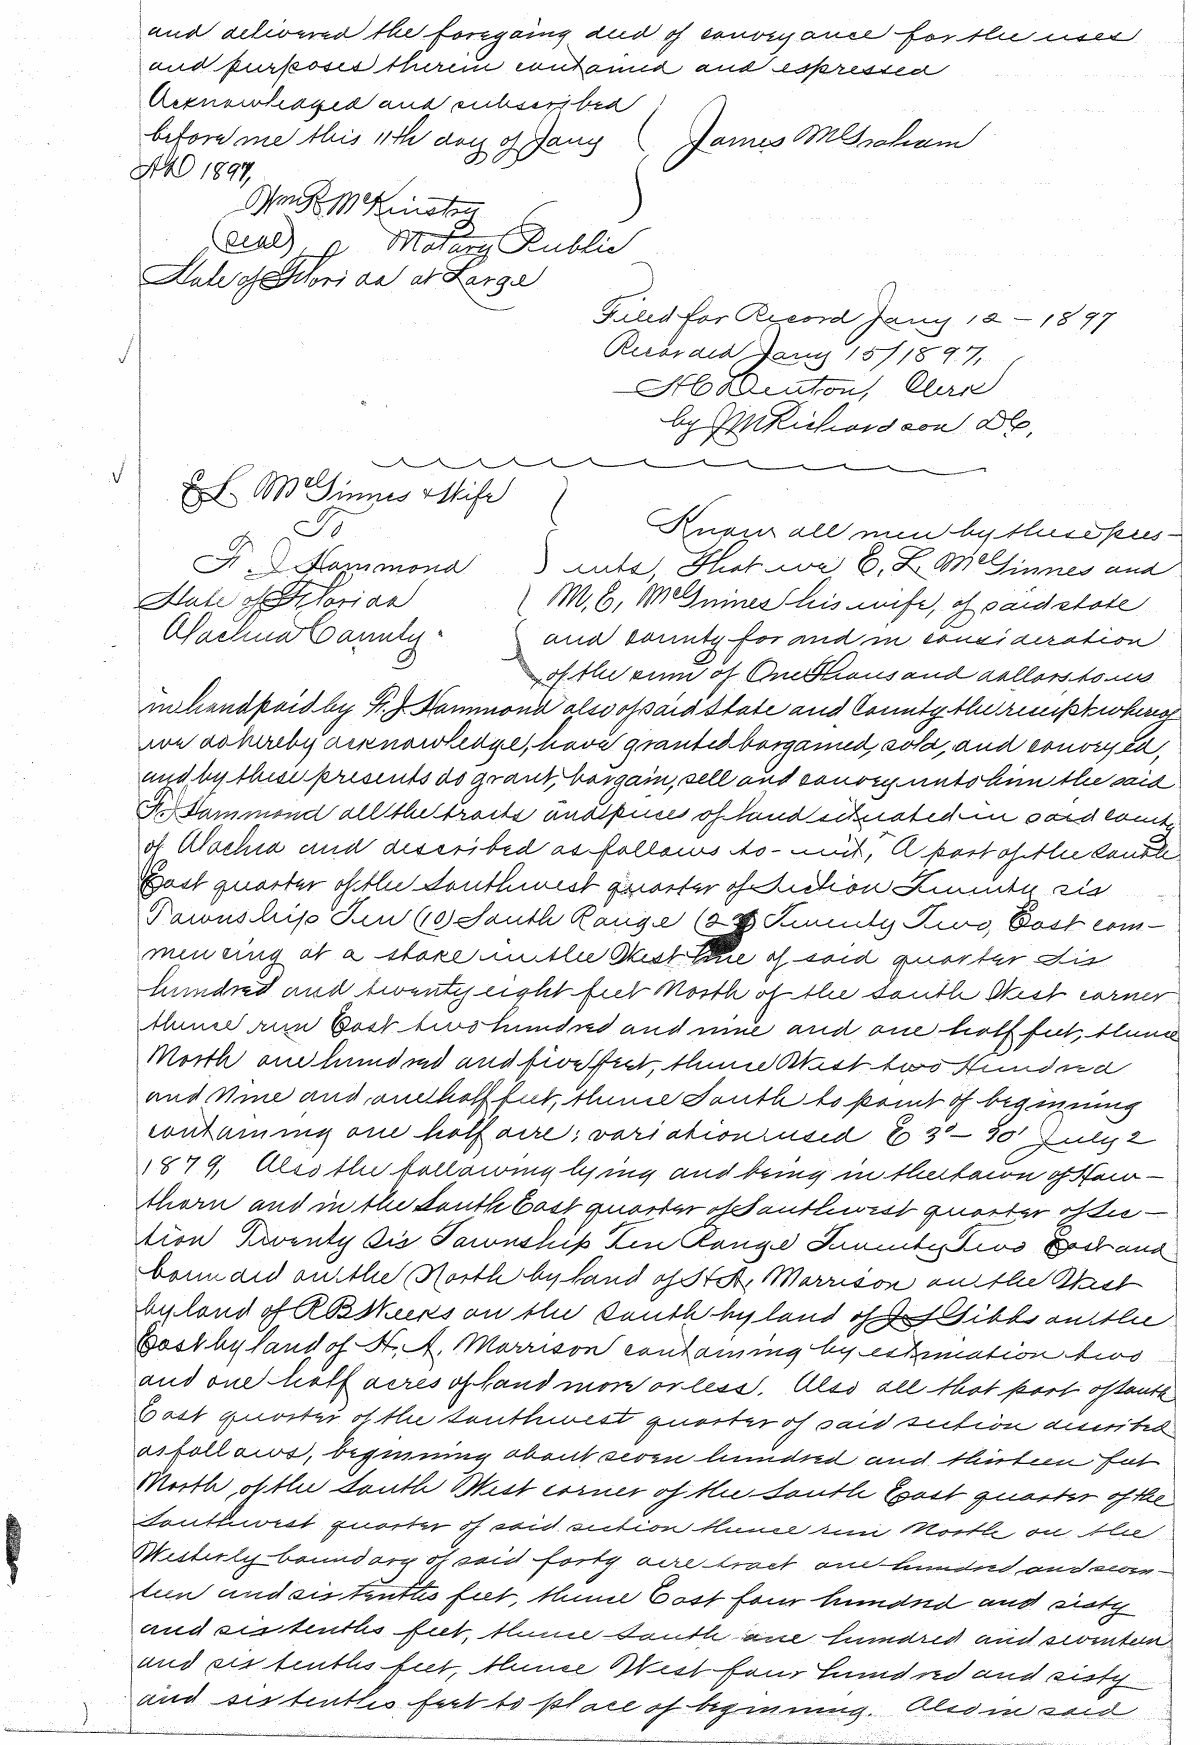 and delivered the foregoing deed of conveyance for the uses
and purposes therein contained and expressed
Acknowledged and subscribed
before me this 11th day of Jany
James McGraham
AD 1897,
Wm R McKinstry
(seal) Notary Public
State of Florida at Large
Filed for Record Jany 12 - 1897
Recorded Jany 15/1897,
H C Denton, Clerk
by J M Richardson DC,
E L. McGinnes & Wife
To
F. J Hammond
State of Florida
Alachua County.
Know all men by these pres-
ents, That we E, L, McGinnes and
M, E, McGinnes his wife, of said state
and county for and in consideration
of the sum of One Thousand dollars to us
in hand paid by F. J. Hammond also of said State and County the receipt whereof
we do hereby acknowledge, have granted bargained, sold, and conveyed,
and by these presents do grant, bargain, sell and convey unto him the said
F. J. Hammond all the tracts and pieces of land situated in said county
of Alachua and described as follows to-wit, A part of the South
East quarter of the Southwest quarter of Section Twenty six
Township Ten (10) South Range (22) Twenty Two, East com-
mencing at a stake in the West line of said quarter six
hundred and twenty eight feet North of the South West corner
thence run East two hundred and nine and one half feet, thence
North one hundred and five feet, thence West two Hundred
and Nine and one half feet, thence South to point of beginning
containing one half acre; variation used E 3° - 30' July 2
1879, Also the following lying and being in the town of Haw-
thorn and in the South East quarter of Southwest quarter of Sec-
tion Twenty Six Township Ten Range Twenty Two East and
bounded on the North by land of H. A, Morrison on the West
by land of R B Weeks on the South by land of J S Gibbs on the
East by land of H. A, Morrison containing by estimation two
and one half acres of land more or less. Also all that part of South
East quarter of the Southwest quarter of said section described
as follows, beginning about seven hundred and thirteen feet
North of the South West corner of the South East quarter of the
Southwest quarter of said section thence run North on the
Westerly boundary of said forty acre tract one hundred and seven-
teen and six tenths feet, thence East four hundred and sixty
and six tenths feet, thence South one hundred and seventeen
and six tenths feet, thence West four hundred and sixty
and six tenths feet to place of beginning. Also in said